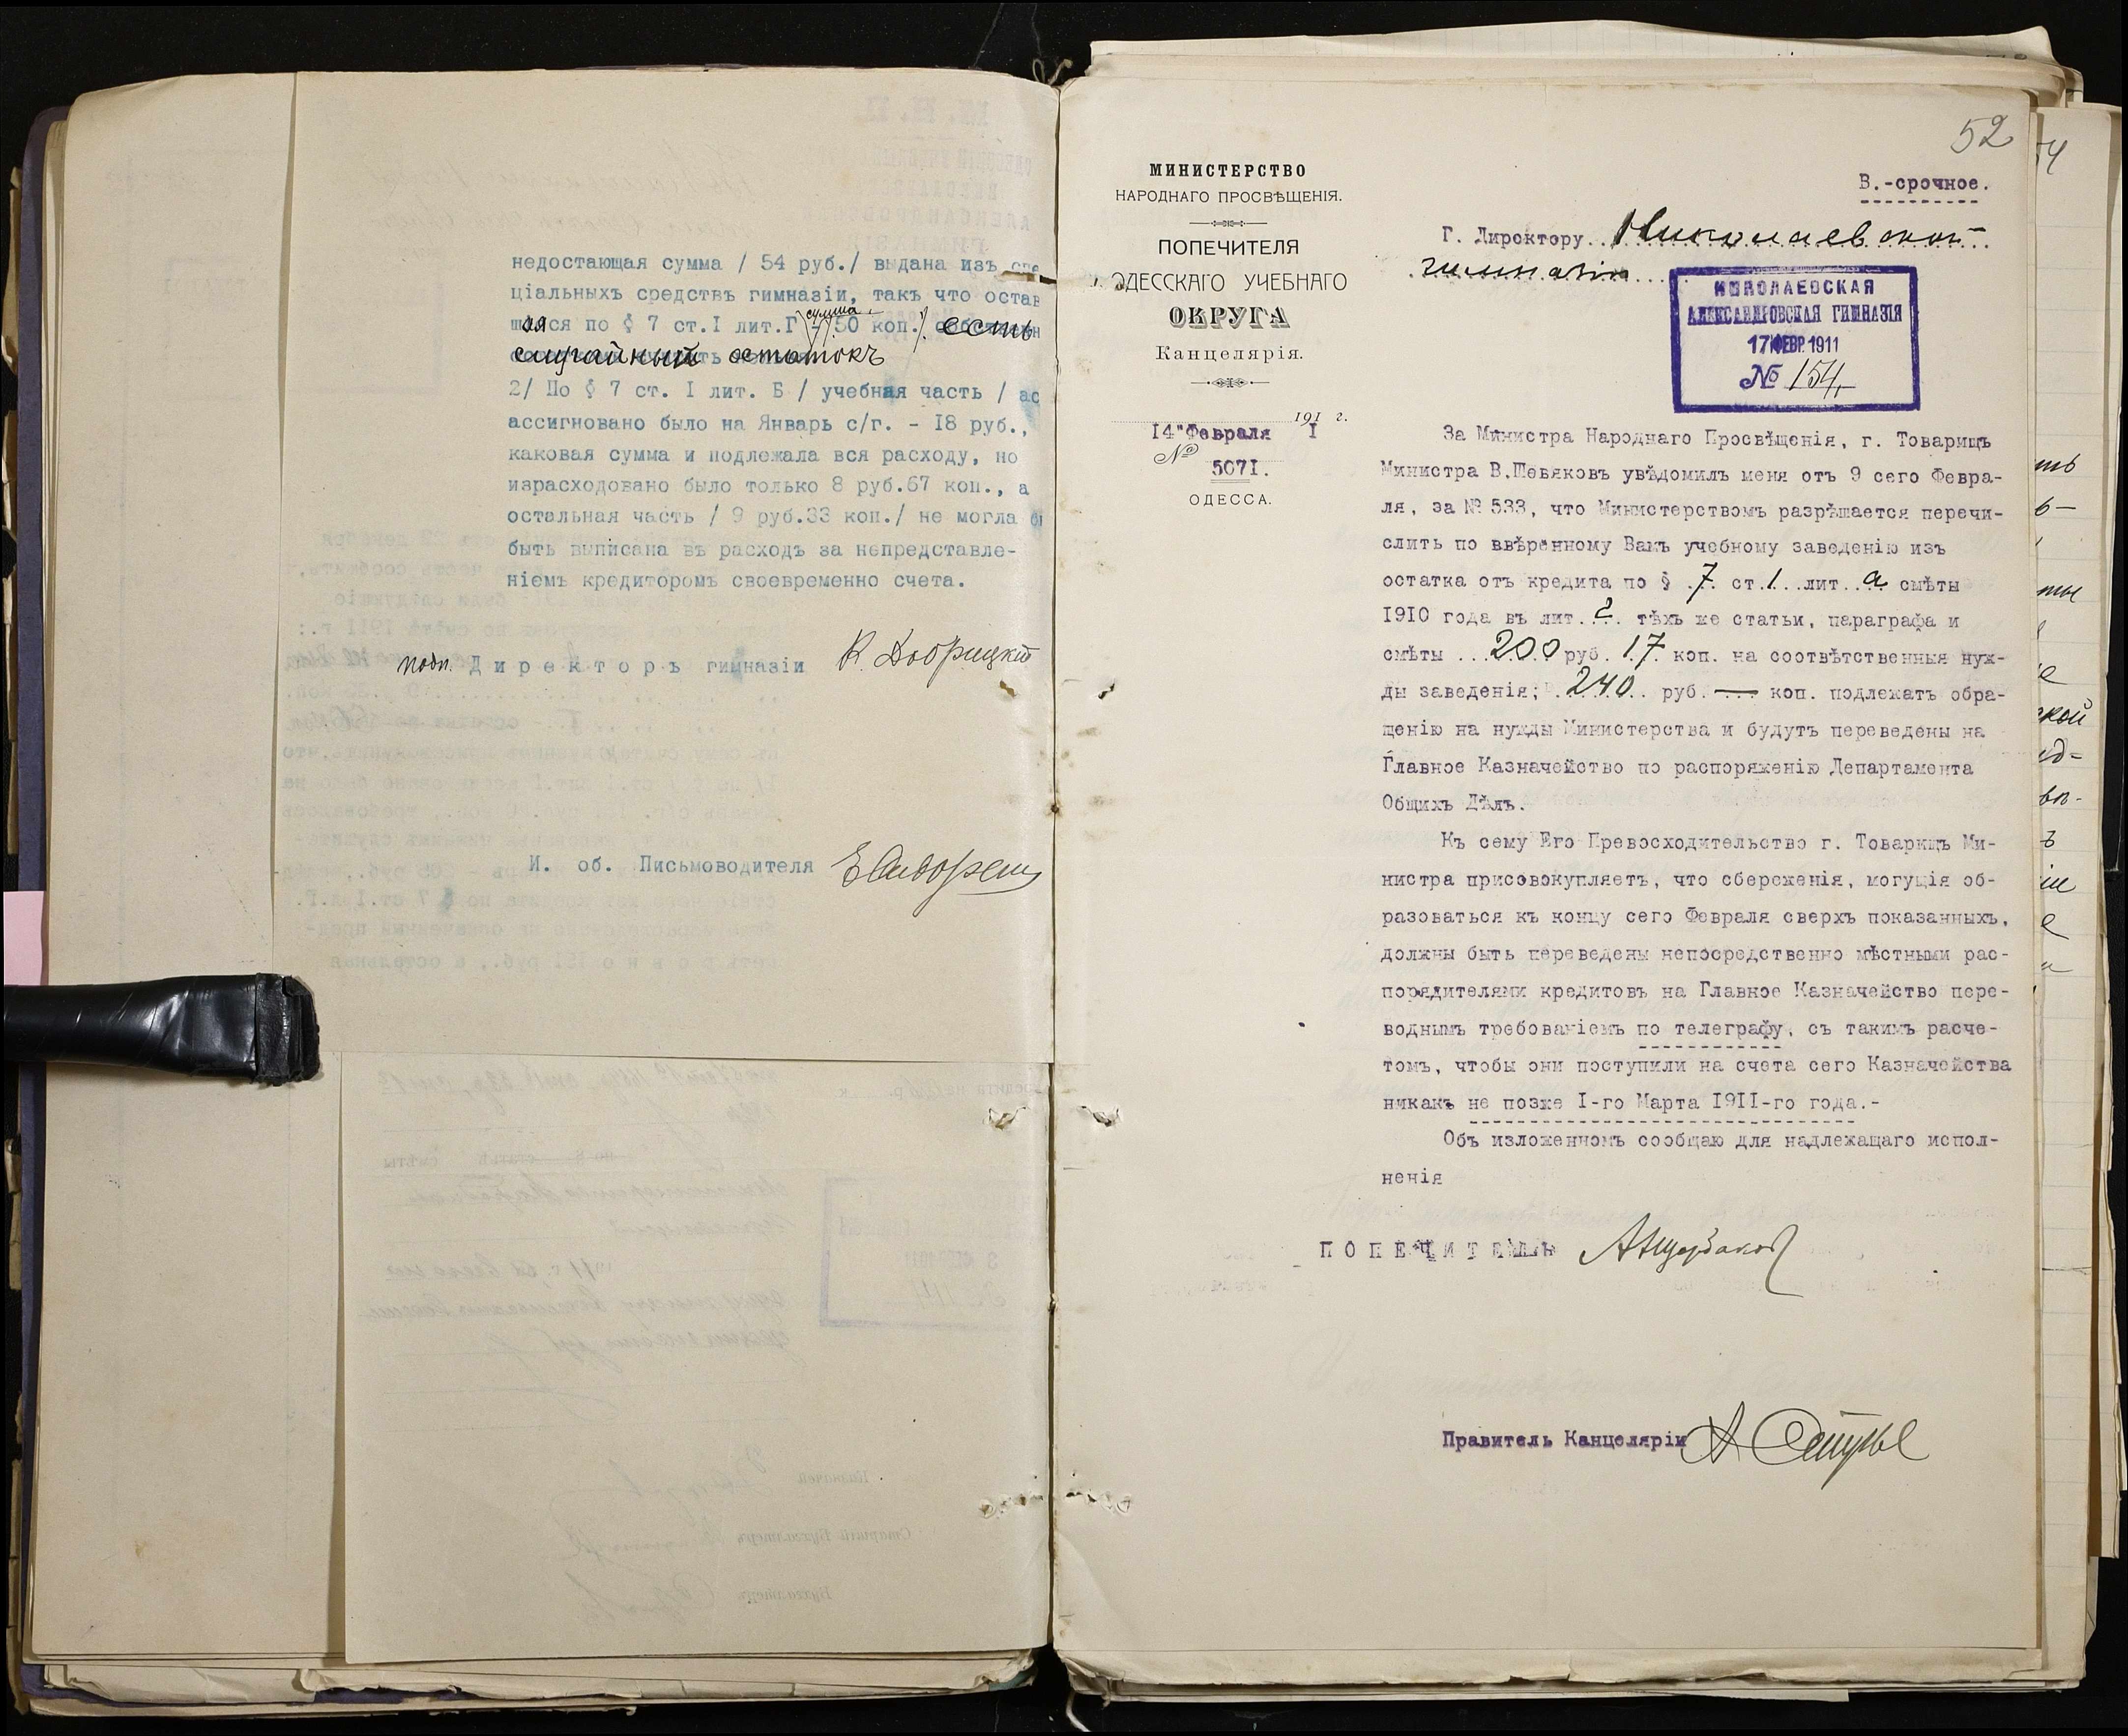 недостающая сумма / 54 руб./ выдана изъ спе
ціальныхъ средствъ гимназіи, такъ что остав
шаяся по § 7 ст.I лит.Г сумма / 50 коп./ есть
случайный остатокъ
2/ По § 7 ст. I лит. Б / учебная часть / ас
ассигновано было на Январь с/г. - I8 руб.,
каковая сумма и подлежала вся расходу, но
израсходовано было только 8 руб.67 коп., а
остальная часть / 9 руб.33 коп./ не могла
быть выписана въ расходъ за непредставле-
ніемъ кредиторомъ своевременно счета.
подп. Директоръ гимназіи К. Добрицкій
И. об. Письмоводителя
52
МИНИСТЕРСТВО
НАРОДНАГО ПРОСВѢЩЕНІЯ.
ПОПЕЧИТЕЛЯ
ОДЕССКАГО УЧЕБНАГО
ОКРУГА
Канцелярія.
191 г.
I4"Февраля I
№ 5071.
ОДЕССА.
В.-срочное.
Г. Директору Николаевской
гимназіи
НИКОЛАЕВСКАЯ
АЛЕКСАНДРОВСКАЯ ГИМНАЗІЯ
17 ФЕВР. 1911
№ 154
За Министра Народнаго Просвѣщенія, г. Товарищъ
Министра В.Шевяковъ увѣдомилъ меня отъ 9 сего Февра-
ля, за № 533, что Министерствомъ разрѣшается перечи-
слить по ввѣренному Вамъ учебному заведенію изъ
остатка отъ кредита по § 7. ст.1...лит..а смѣты
1910 года въ лит. г. тѣхъ же статьи, параграфа и
смѣты ...200 руб. 17. коп. на соотвѣтственныя нуж-
ды заведенія; 240 руб. — коп. подлежатъ обра-
щенію на нужды Министерства и будутъ переведены на
Главное Казначейство по распоряженію Департамента
Общихъ Дѣлъ.
Къ сему Его Превосходительство г. Товарищъ Ми-
нистра присовокупляетъ, что сбереженія, могущія об-
разоваться къ концу сего Февраля сверхъ показанныхъ,
должны быть переведены непосредственно мѣстными рас-
порядителями кредитовъ на Главное Казначейство пере-
воднымъ требованіемъ по телеграфу, съ такимъ расче-
томъ, чтобы они поступили на счета сего Казначейства
никакъ не позже I-го Марта I9II-го года.-
Объ изложенномъ сообщаю для надлежащаго испол-
ненія
ПОПЕЧИТЕЛЬ АЩербаковъ
Правитель Канцеляріи